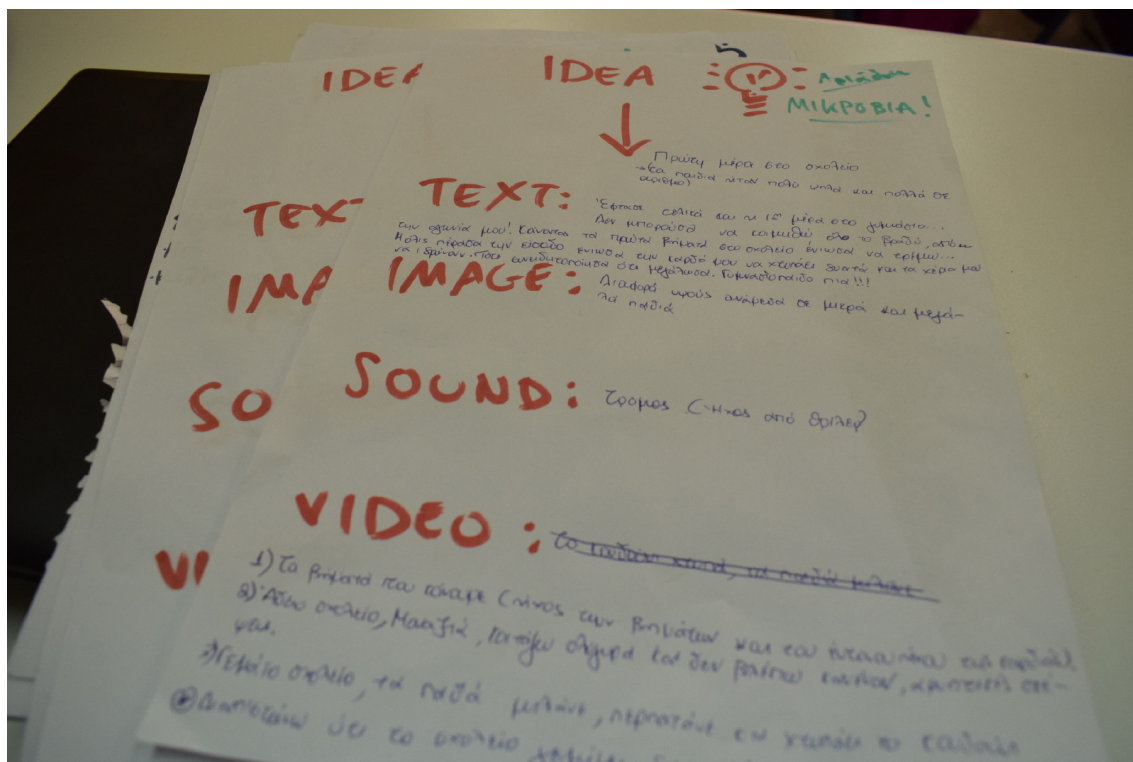 IDEA
IDEA
ΜΙΚΡΟΒΙΑ!
Πρώτη μέρα στο σχολείο
τα παιδιά ήταν πολύ ψηλά και πολλά σε
αριθμό)
TEXT:
TEXT
Έφτασε και η 1η μέρα στο γυμνάσιο...
Δεν μπορούσα να κοιμηθώ όλο το βράδυ, από
την αγωνία μου! Κάνοντας τα πρώτα βήματα στο σχολείο ένιωσα να τρέμω...
Μόλις πέρασα την είσοδο ένιωσα την καρδιά μου να χτυπάει δυνατά και τα χέρια μου
να ιδρώνουν. Τότε συνειδητοποίησα ότι μεγάλωσα. Γυμνασιόπαιδο πια!!!
IMAGE:
IMA
Διαφορά ύψους ανάμεσα σε μικρά και μεγά-
λα παιδιά
SOUND:
SO
Τρόμος (ήχος από θρίλερ)
VIDEO:
VI
το κουδούνι χτυπά, τα παιδιά μιλάνε
1) Τα βήματα που κάναμε (ήχος των βημάτων και του της καρδιάς)
2) Άδειο σχολείο, κοιτάζω και δεν βλέπω κανέναν,
ψεις.
3) Γεμάτο σχολείο, τα παιδιά μιλάνε, περπατάνε και χτυπάει το κουδούνι
Διαπιστώνω ότι το σχολείο